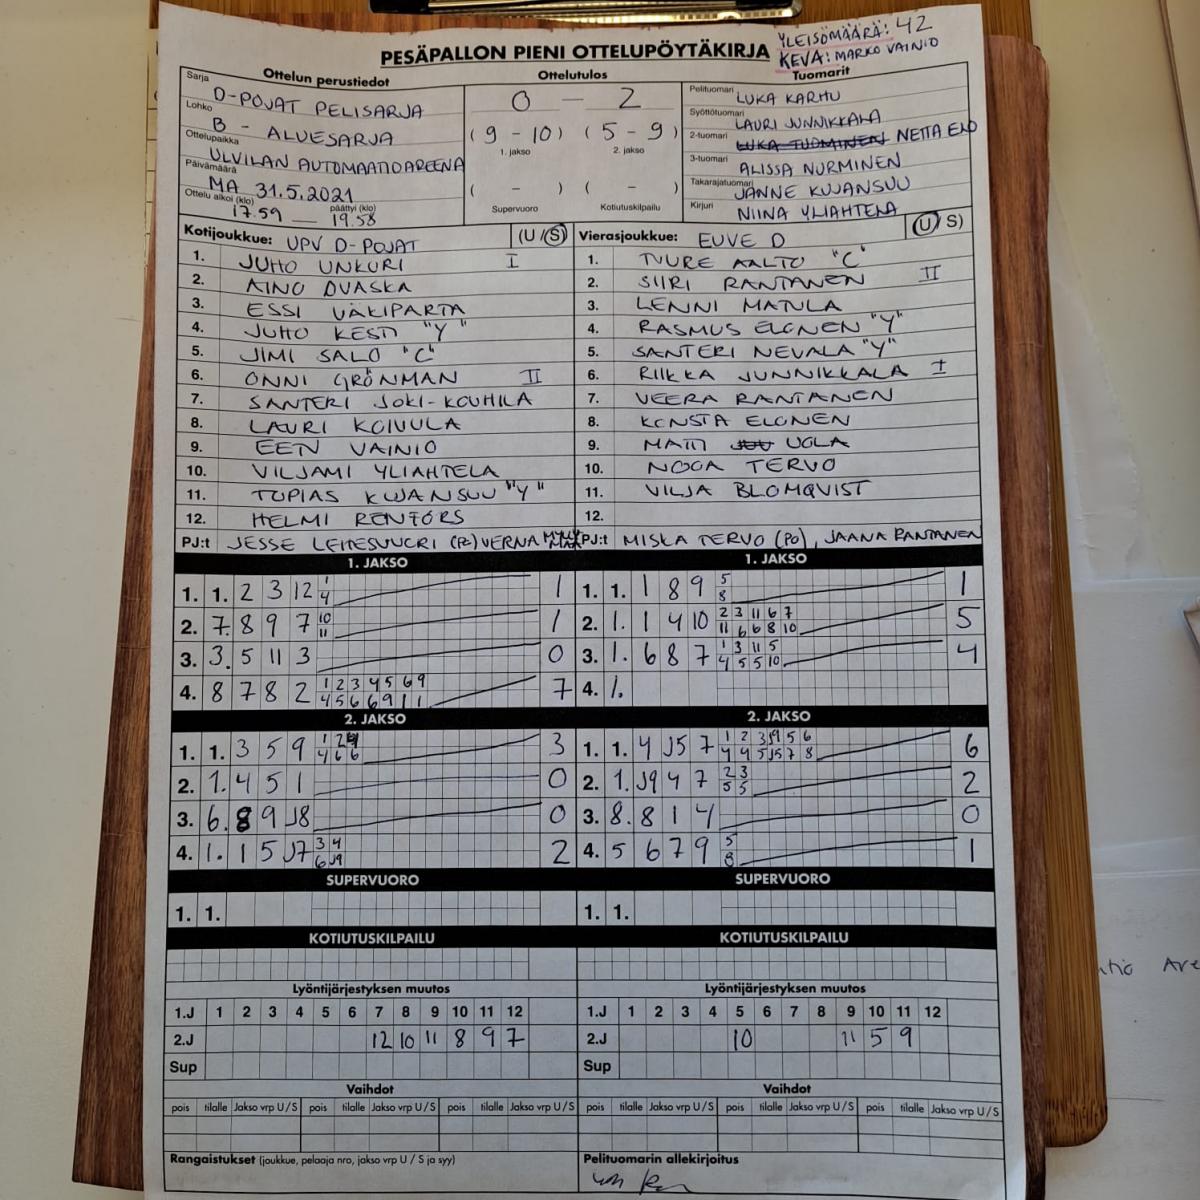 YLEISÖMÄÄRÄ: 42
PESÄPALLON PIENI OTTELUPÖYTÄKIRJA KEVA: MARKO VAINIO
Ottelun perustiedot Ottelutulos Tuomarit
Sarja D-POJAT PELISARJA
Lohko B - ALUESARJA
Ottelupaikka ULVILAN AUTOMAATIOAREENA
Päivämäärä MA 31.5.2021
Ottelu alkoi (klo) 17.59 päättyi (klo) 19.58
0 - 2
(9 - 10) (5 - 9)
1. jakso 2. jakso
( - ) ( - )
Supervuoro Kotiutuskilpailu
Pelituomari LUKA KARHU
Syöttötuomari LAURI JUNNIKKALA
2-tuomari LUKA TUOMINEN NETTA
3-tuomari ALISSA NURMINEN
Takarajatuomari JANNE KUJANSUU
Kirjuri NIINA YLIAHTELA
Kotijoukkue: UPV D-POJAT (U/S)
1. JUHO UNKURI I
2. AINO OVASKA
3. ESSI VÄKIPARTA
4. JUHO KESTI "Y"
5. JIMI SALO "C"
6. ONNI GRÖNMAN II
7. SANTERI JOKI-KOUHILA
8. LAURI KOIVULA
9. EEN VAINIO
10. VILJAMI YLIAHTELA
11. TOPIAS KUJANSUU "Y"
12. HELMI RENFORS
PJ:t JESSE (PJ) VERNA
Vierasjoukkue: EUVE D (U/S)
1. TUURE AALTO "C"
2. SIIRI RANTANEN II
3. LENNI MATULA
4. RASMUS ELONEN "Y"
5. SANTERI NEVALA "Y"
6. RIIKKA JUNNIKKALA I
7. VEERA RANTANEN
8. KONSTA ELONEN
9. MATTI UOLA
10. NOOA TERVO
11. VILJA BLOMQVIST
12.
PJ:t MISKA TERVO (PO), JAANA RANTANEN
1. JAKSO 1. JAKSO
1. 1. 2 3 12 1 1
4
2. 7. 8 9 7 10 1
11
3. 3. 5 11 3 0
4. 8 7 8 2 1 2 3 4 5 6 9 7
4 5 6 6 9 1 1
1. 1. 1 8 9 5 1
8
2. 1. 1 4 10 2 3 11 6 7 5
11 6 6 8 10
3. 1. 6 8 7 1 3 11 5 4
4 5 5 10
4. 1.
2. JAKSO 2. JAKSO
1. 1. 3 5 9 1 2 3
4 6 6
2. 1. 4 5 1 0
3. 6. 8 9 J8 0
4. 1. 1 5 J7 3 4 2
6 J9
1. 1. 4 J5 7 1 2 3 J9 5 6 6
4 4 5 J5 7 8
2. 1. J9 4 7 2 3 2
5 5
3. 8. 8 1 4 0
4. 5 6 7 9 5 1
8
SUPERVUORO SUPERVUORO
1. 1. 1. 1.
KOTIUTUSKILPAILU KOTIUTUSKILPAILU
Lyöntijärjestyksen muutos Lyöntijärjestyksen muutos
1.J 1 2 3 4 5 6 7 8 9 10 11 12 1.J 1 2 3 4 5 6 7 8 9 10 11 12
2.J 12 10 11 8 9 7 2.J 10 11 5 9
Sup Sup
Vaihdot Vaihdot
pois tilalle Jakso vrp U/S pois tilalle Jakso vrp U/S pois tilalle Jakso vrp U/S pois tilalle Jakso vrp U/S pois tilalle Jakso vrp U/S pois tilalle Jakso vrp U/S
Rangaistukset (joukkue, pelaaja nro, jakso vrp U / S ja syy) Pelituomarin allekirjoitus